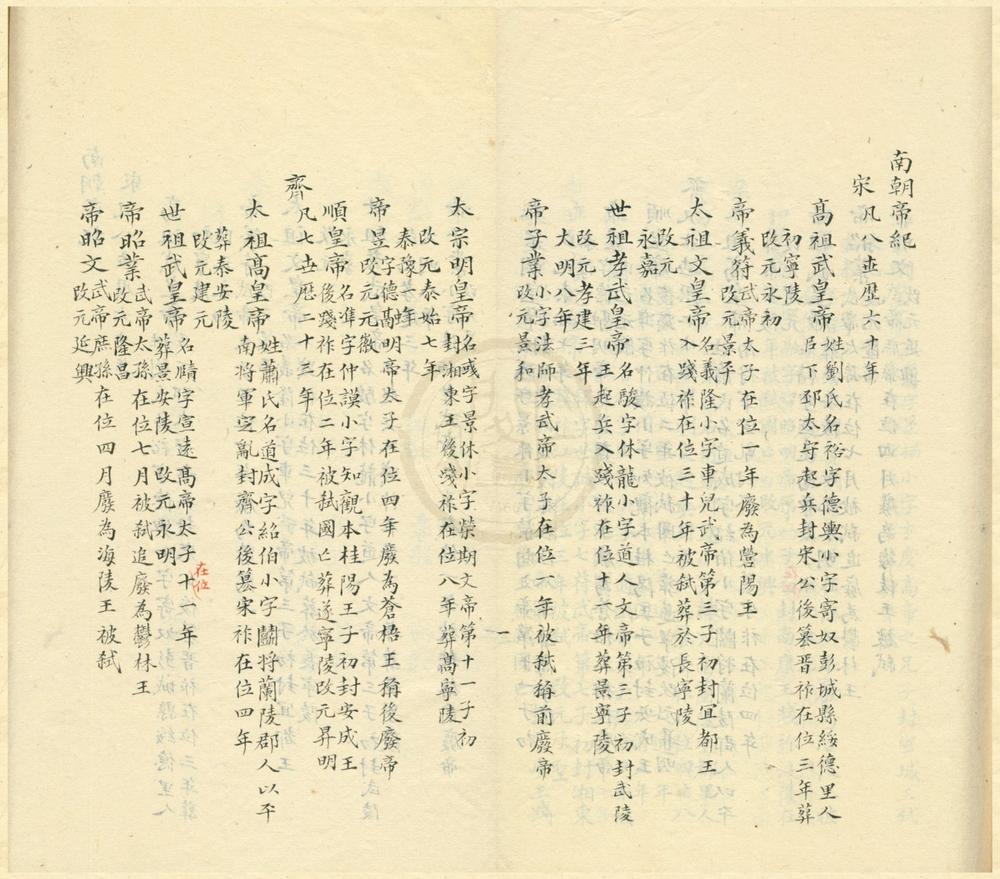 南朝帝紀
宋凡八世歷六十年
高祖武皇帝姓劉氏名裕字德輿小字寄奴彭城縣綏德里人
始巨下邳太守起兵封宋公後篡晉祚在位三年葬
初寧陵
改元永初
帝義符武帝太子在位一年廢為營陽王
改元景平
太祖文皇帝名義隆小字車兒武帝第三子初封宜都王
入踐祚在位三十年被弒葬於長寧陵
改元
永嘉
世祖孝武皇帝名駿字休龍小字道人文帝第三子初封武陵
王起兵入踐祚在位十一年葬景寧陵
改元孝建三年
大明八年
帝子業小字法師孝武帝太子在位八年被弒稱前廢帝
改元景和
一
太宗明皇帝名彧字景休小字榮期文帝第十一子初
封湘東王後踐祚在位八年葬高寧陵
改元泰始七年
泰豫
帝昱字德高明帝太子在位四年廢為蒼梧王稱後廢帝
改元元徽
順皇帝名準字仲謨小字知觀本桂陽王子初封安成王
後踐祚在位二年被弒國亡葬遂寧陵改元昇明
齊凡七世歷二十三年
太祖高皇帝姓蕭氏名道成字紹伯小字鬬將蘭陵郡人以平
南將軍定亂封齊公後篡宋祚在位四年
葬泰安陵
改元建元
世祖武皇帝名賾字宣遠高帝太子在位十一年
葬景安陵 改元永明
帝昭業武帝太孫在位七月被弒追廢為鬱林王
改元隆昌
帝昭文武帝庶孫在位四月廢為海陵王被弒
改元延興